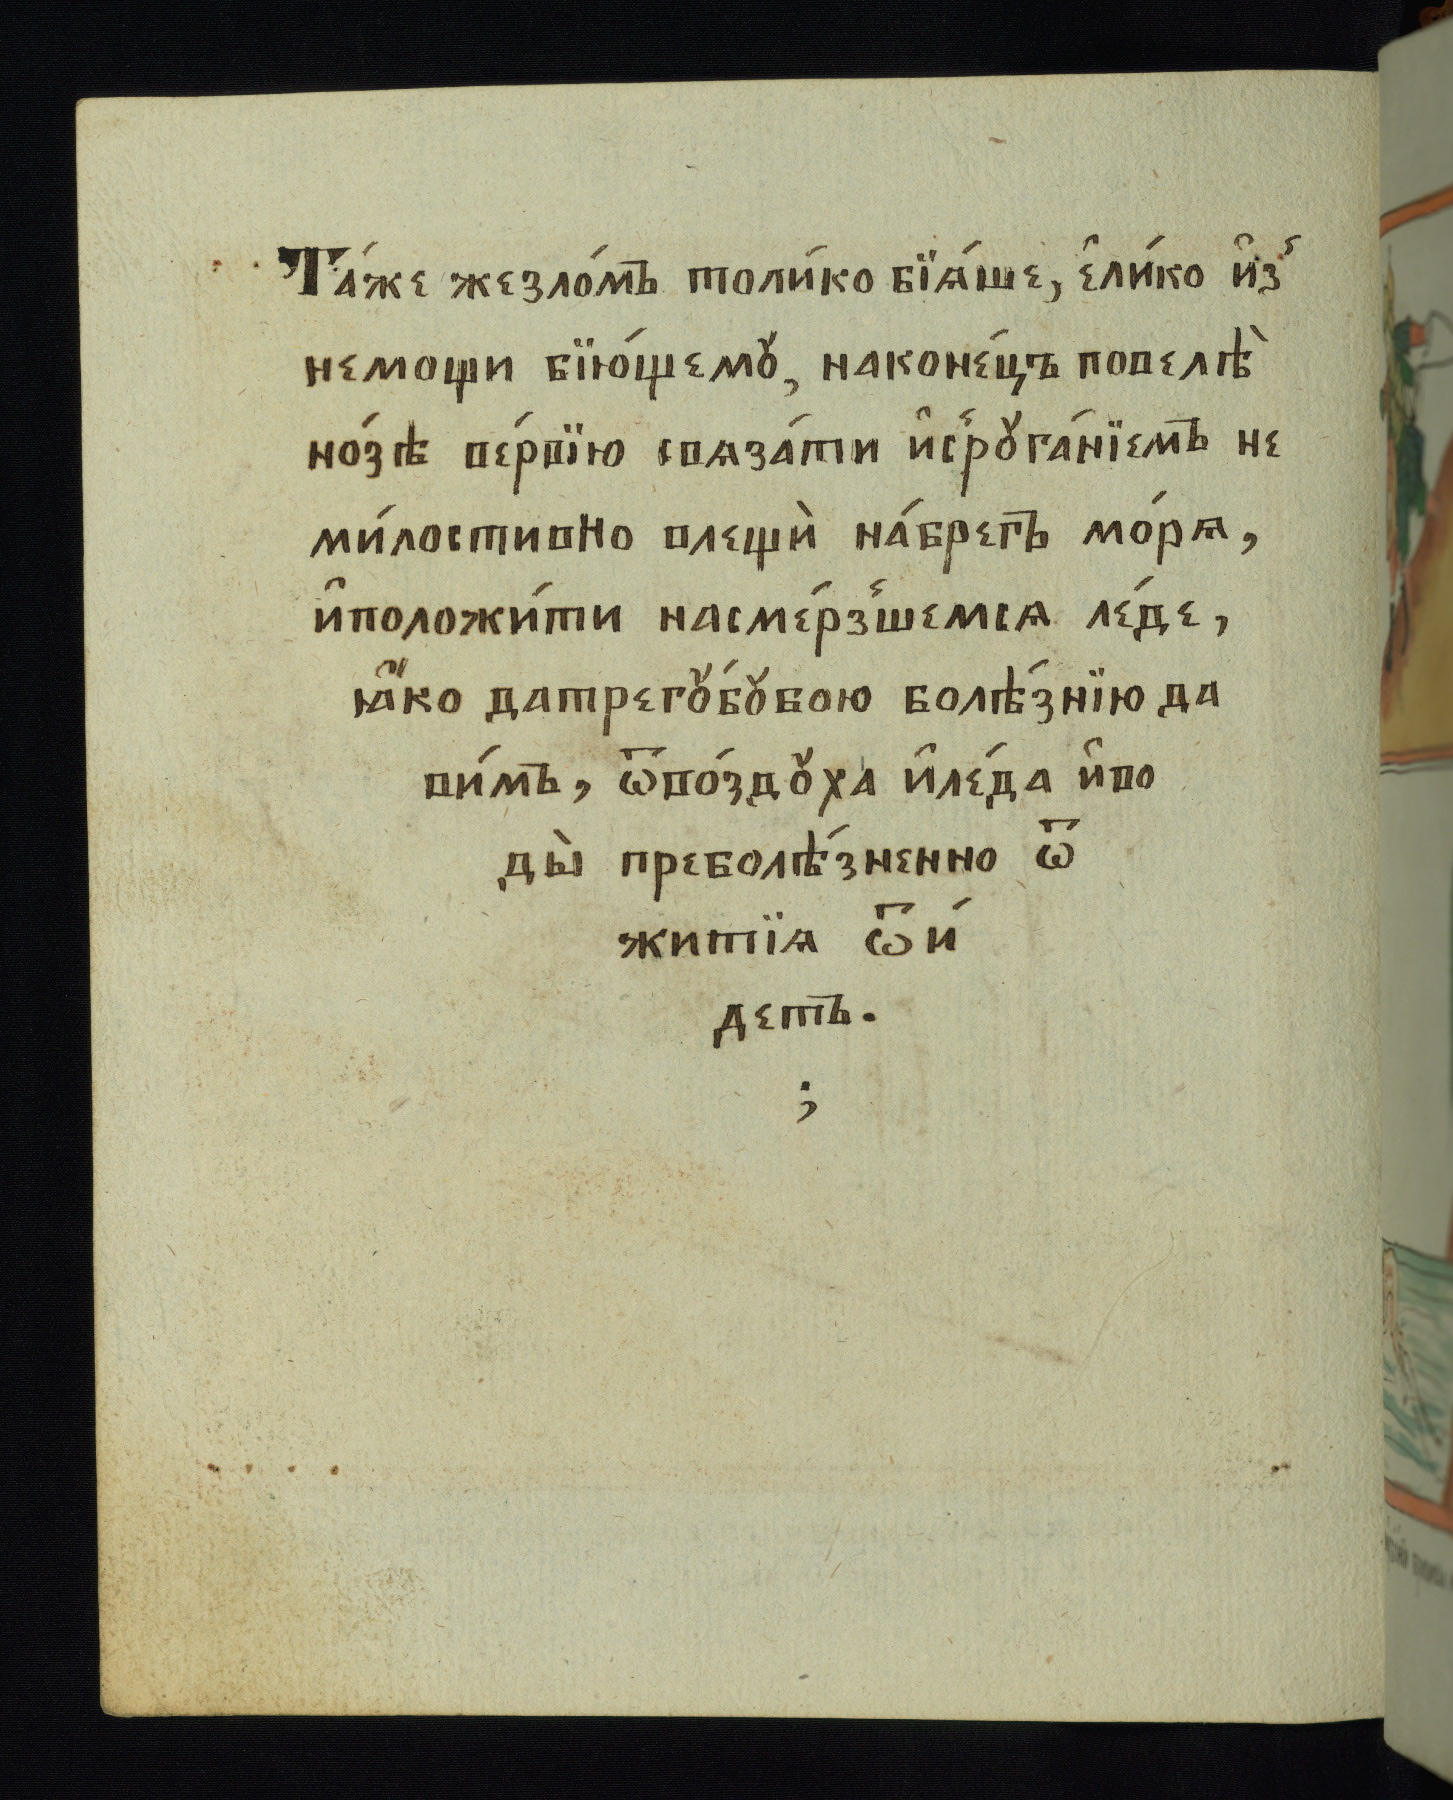 Та́же жезло́мъ толи́ко бїѧ́ше, є҆ли́ко и҆з̾
немощи бїю́щемꙋ, наконе́цъ повелѣ̀
но́зѣ ве́рвїю свѧза́ти и҆с̾рꙋга́нїемъ не
ми́лостивно влещѝ на́брегъ мо́рѧ,
и҆положи́ти насме́рз̾шемсѧ ле́де,
ꙗ҆́ко датрегꙋ́бꙋбою болѣ́знїю да
ви́мъ, ѿво́здꙋха и҆ле́да и҆во
ды̀ преболѣ́зненно ѿ
житїѧ ѿи́
детъ.
;